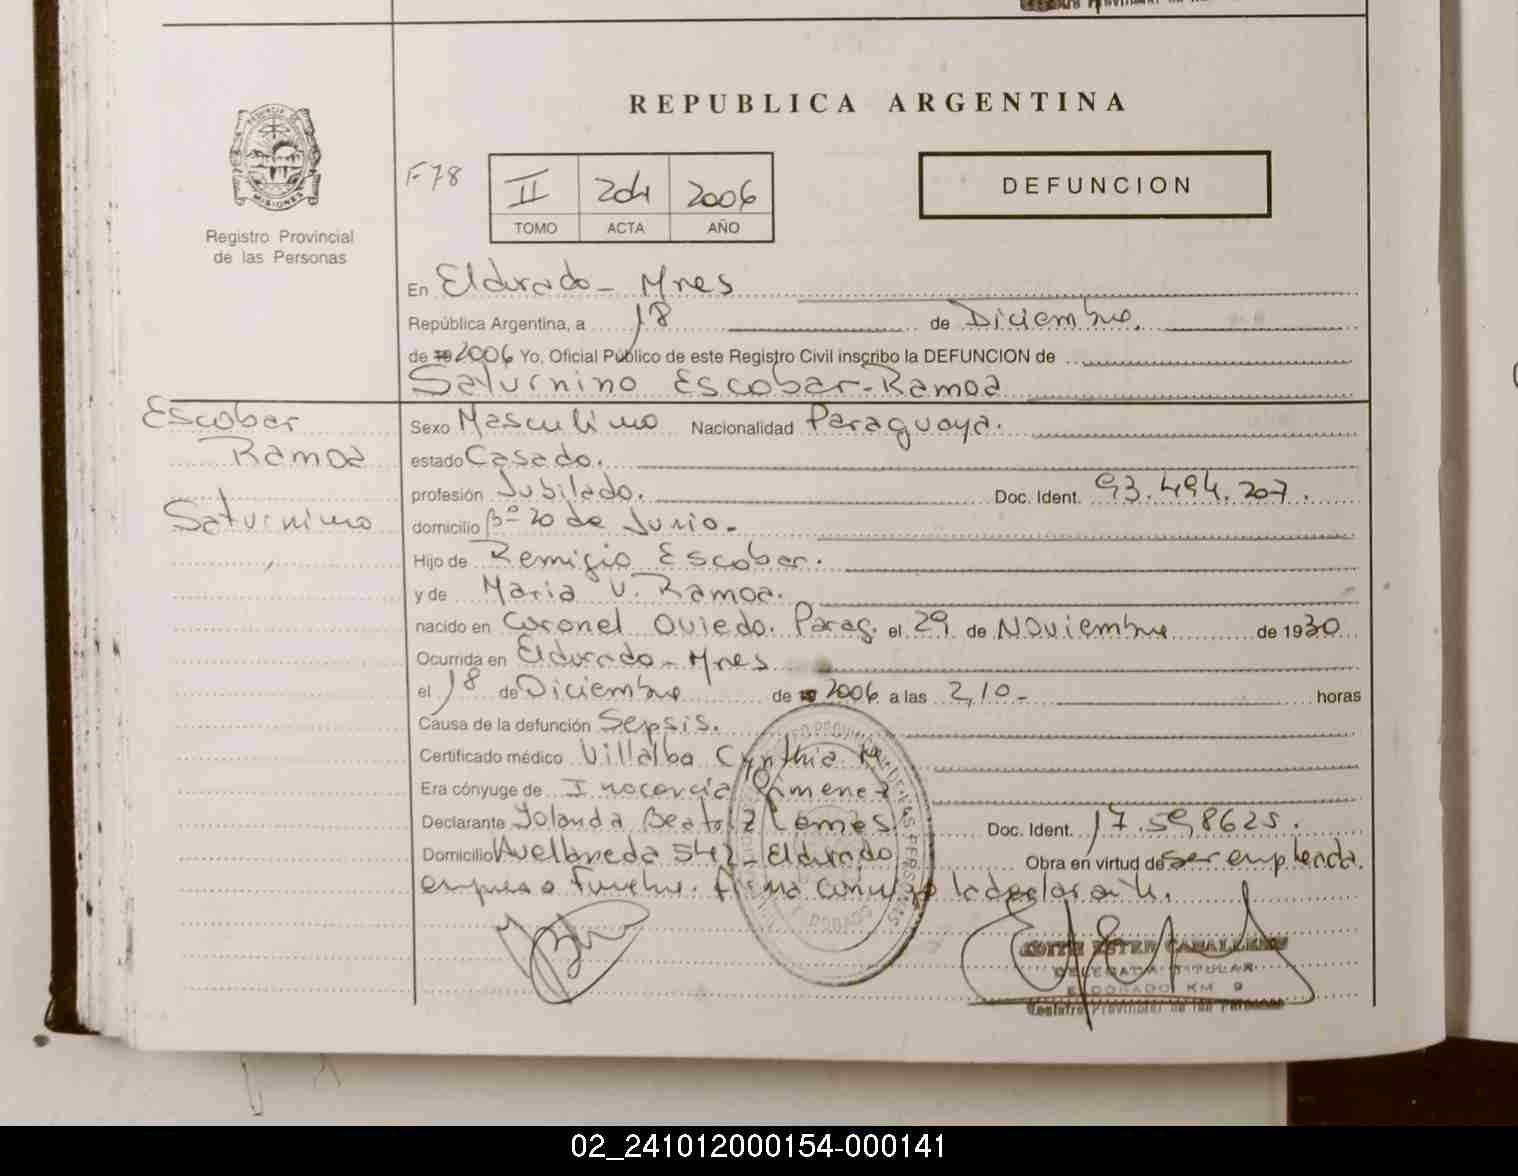 REPUBLICA ARGENTINA
PROVINCIA DE
MISIONES
Registro Provincial
de las Personas
F78
II 204 2006
TOMO ACTA AÑO
DEFUNCION
En Eldorado - Mnes
República Argentina, a 18 de Diciembre.
de 2006 Yo, Oficial Público de este Registro Civil inscribo la DEFUNCION de
Saturnino Escobar-Ramoa
Escobar
Ramoa
Saturnino
Sexo Masculino Nacionalidad Paraguaya.
estado Casado.
profesión Jubilado. Doc. Ident. 93.494.207.
domicilio Bº 20 de Junio-
Hijo de Remigio Escobar.
y de Maria V. Ramoa.
nacido en Coronel Oviedo. Parag. el 29 de Noviembre de 1930
Ocurrida en Eldorado - Mnes
el 18 de Diciembre de 2006 a las 2,10- horas
Causa de la defunción Sepsis.
Certificado médico Villalba Cynthia M.
Era cónyuge de Inocencia Gimenez
Declarante Yolanda Beatriz Lemes Doc. Ident. 17.598625.
Domicilio Avellaneda 542 - Eldorado Obra en virtud de ser empleada
empresa funebre. Firma conmigo la declarante.
EDITH ESTER CABALLERO
DELEGADA TITULAR
ELDORADO KM 9
Registro Provincial de las Personas
02_241012000154-000141